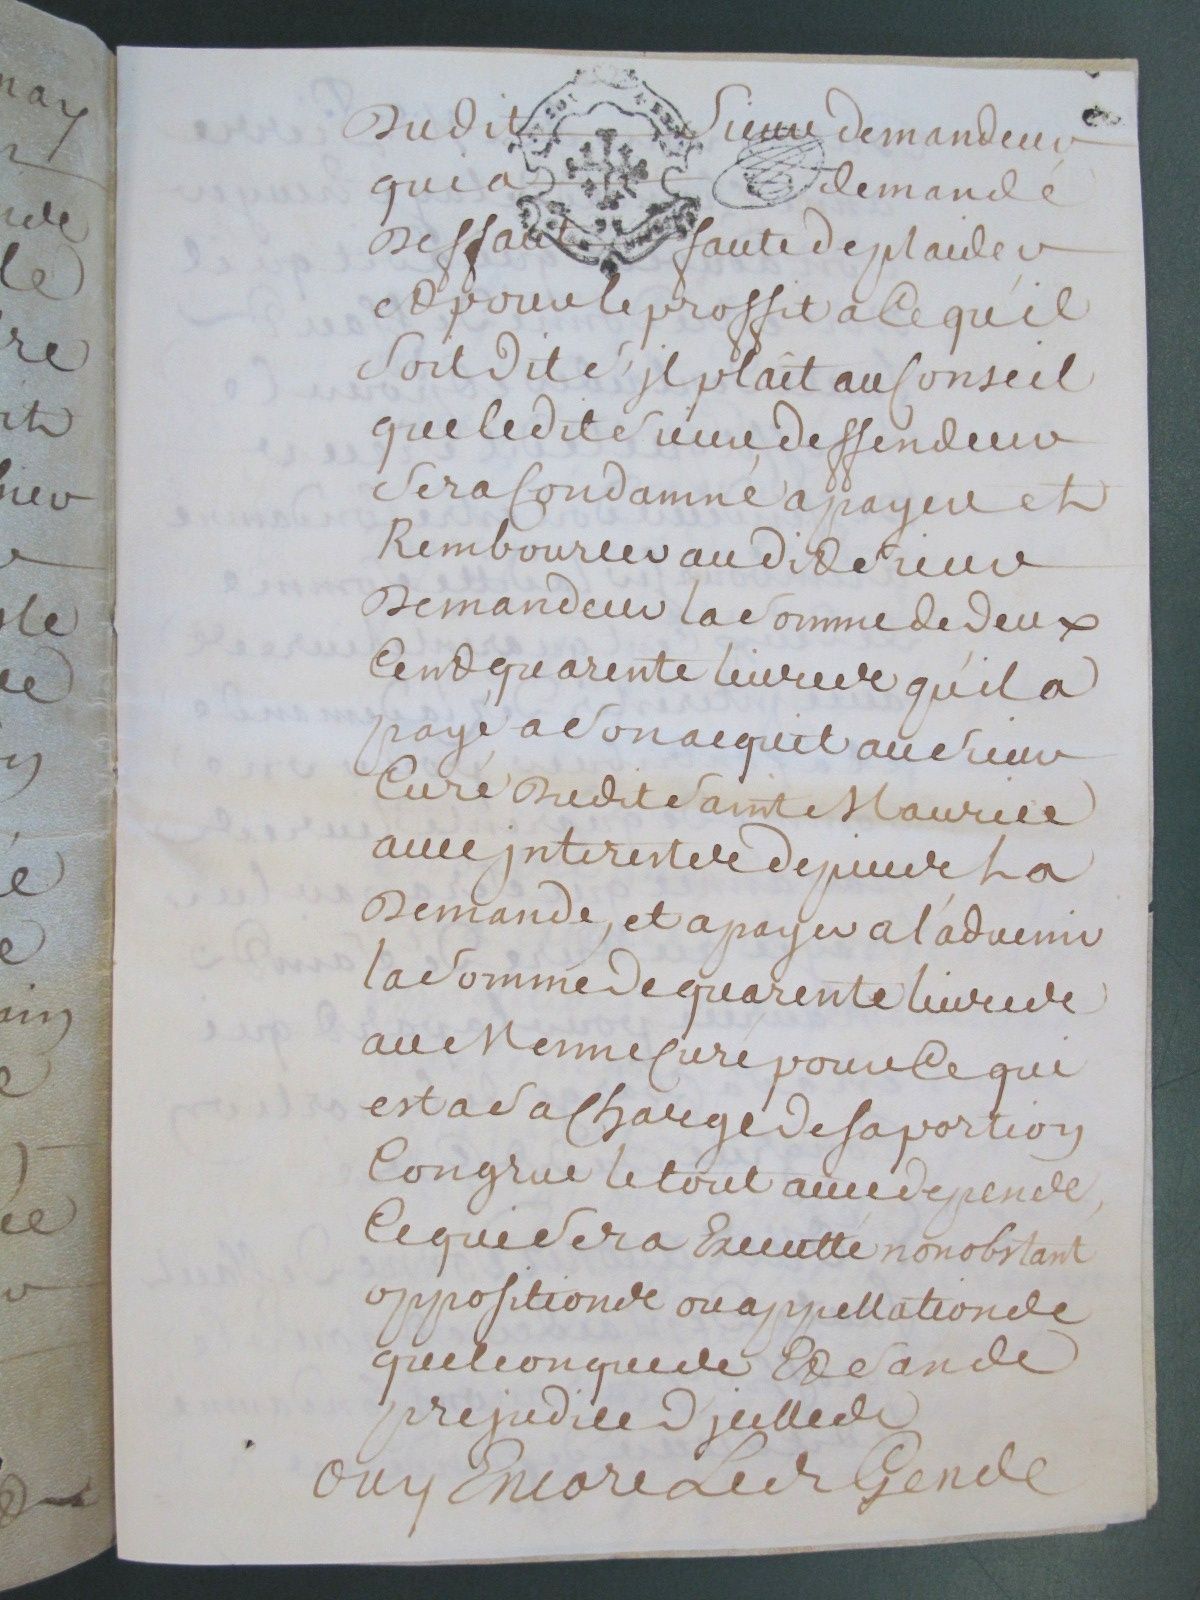 Dudit Sieur demandeur
qui a demandé
Deffaut faute de plaider
et pour le proffit a ce qu'il
soit dit s'jl plaît au Conseil
que ledit Sieur deffendeur
sera Condamné a payer et
Rembourser audit Sieur
Demandeur la somme de deux
Cent quarente livres qu'il a
payé a son acquit au sieur
Curé Dudit Saint Maurice
avec jnterests depuis La
Demande, et a payer a l'advenir
la somme de quarente livres
au Mesme Curé pour Ce qui
est a sa Charge de sa portion
Congrue le tout avec depens,
Ce qui sera Executté nonobstant
oppositions ou appellations
quelconques Et sans
prejudice d'jcelles
Ouy Encore Les Gens